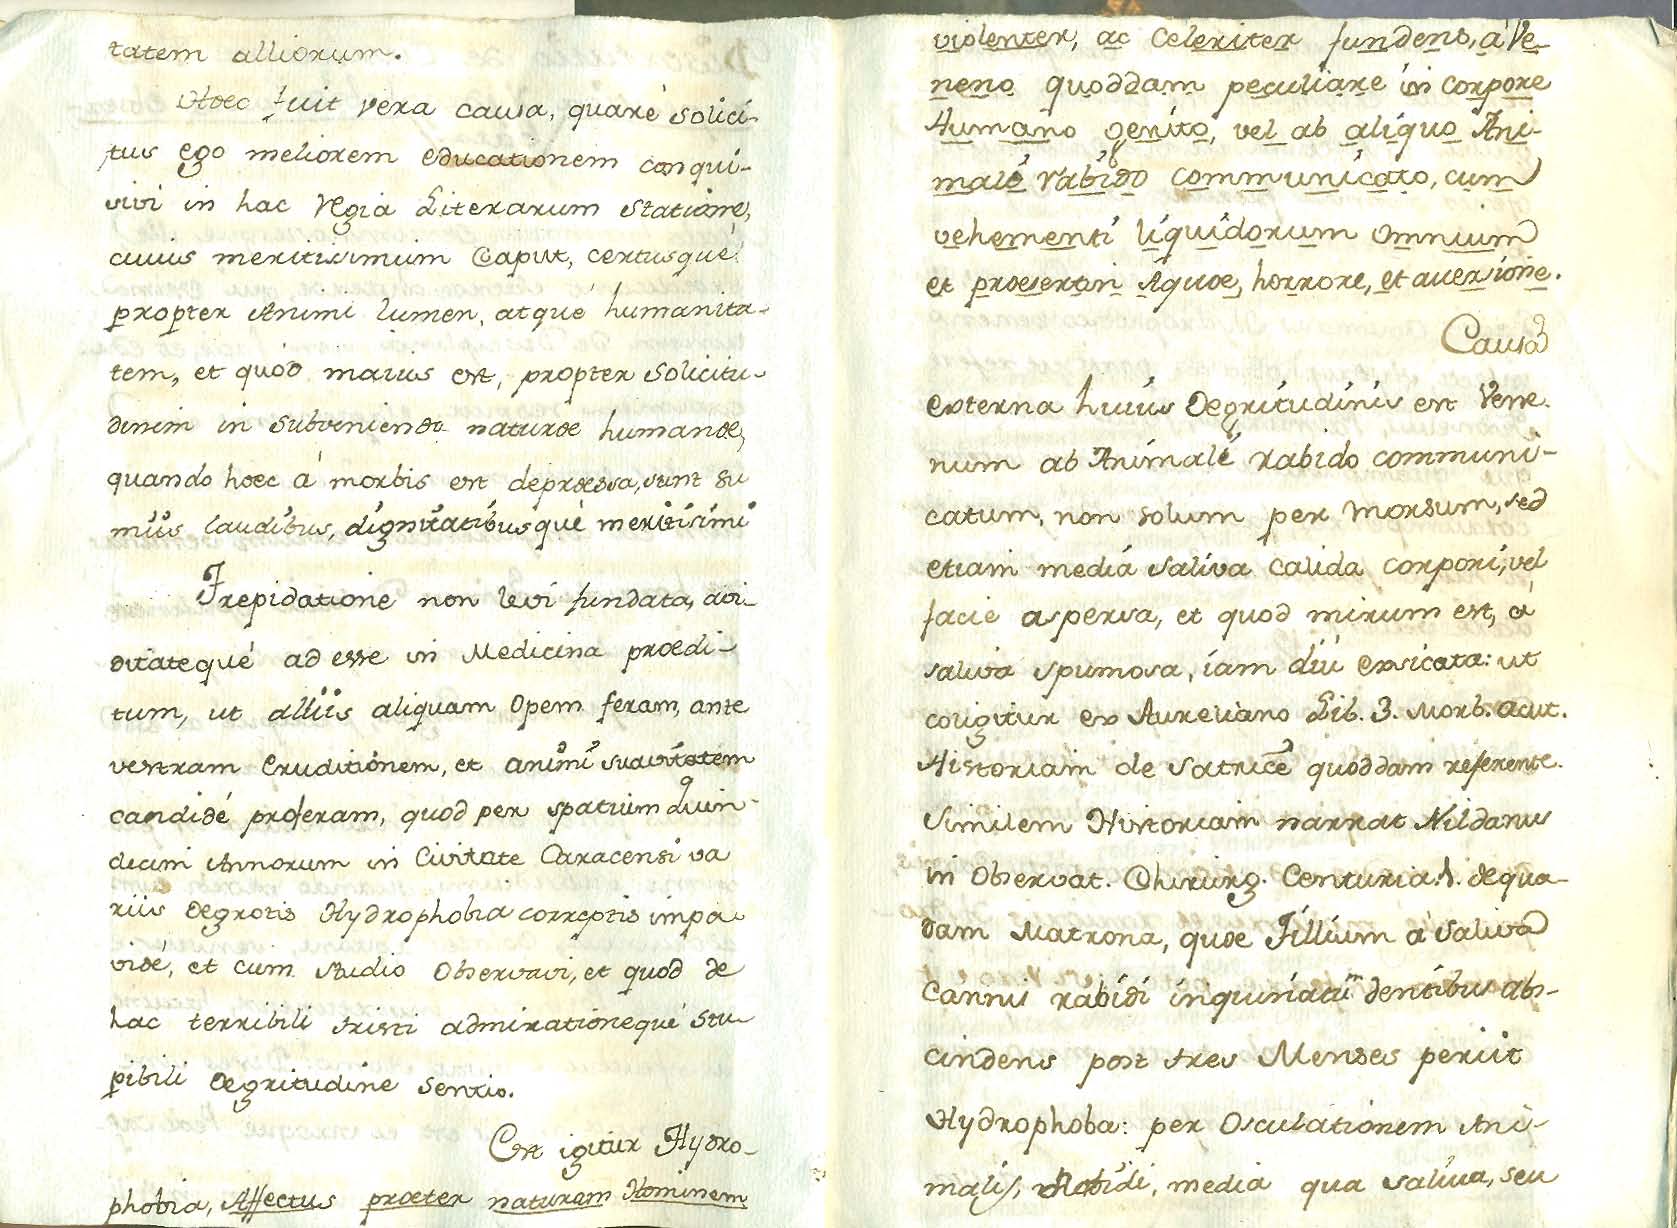 tatem alliorum.
Hoec fuit vera causa, quarè solici-
tus ego meliorem educationem conqui-
sivi in hac Regia Literarum statione,
cuius meritissimum Caput, certusqué
propter Animi lumen, atqué humanita-
tem, et quod maius est, propter solicitu-
dinem in subveniendo naturae humanae,
quando hoec á morbis est depressa, sunt su
miis laudibus, dignitatibusqué meritisimi
Trepidatione non levi fundata, avi-
ditatequé ad esse in Medicina proedi-
tum, ut alliis aliquam Opem feram, ante
vestram Eruditionem, et animi suavitatem
candidé proferam, quod per spatium Quin-
decim Annorum in Civitate Caracensi va
riis Oegrotis Hydrophobia correptis impa-
vidé, et cum studio Observavi, et quod de
hac terribili tristi admirationequé stu-
pibili Oegritudine sentio.
Est igitur Hydro-
phobia, Affectus proeter naturam Hominem
violenter, ac Celeriter fundens, á Ve-
neno quoddam peculiare in Corpore
Humano genito, vel ab aliquo Ani-
malé rabido communicato, cum
vehementi liquidorum omnium
et proesertin Aquoe, horrore, et auersione.
Causa
externa huius Oegritudinis est Vene-
num ab Animalé rabido communi-
catum, non solum per morsum, sed
etiam mediá saliva calida corpori, vel
facie aspersa, et quod mirum est, á
saliva spumosa, iam diú exsicata: ut
coligitur ex Aureliano Lib. 3. Morb. acut.
Historiam de satricé quoddam referente.
Similem Historiam narrat Hildanus
in Observat. Chirurg. Centuria. 1. de qua-
dam Matrona, quoe Fillium á saliva
Cannis rabidi inquinatum dentibus abs-
cindens post tres Menses periit
Hydrophoba: per Osculationem Ani-
malis, Rabidi, media qua saliva, seu